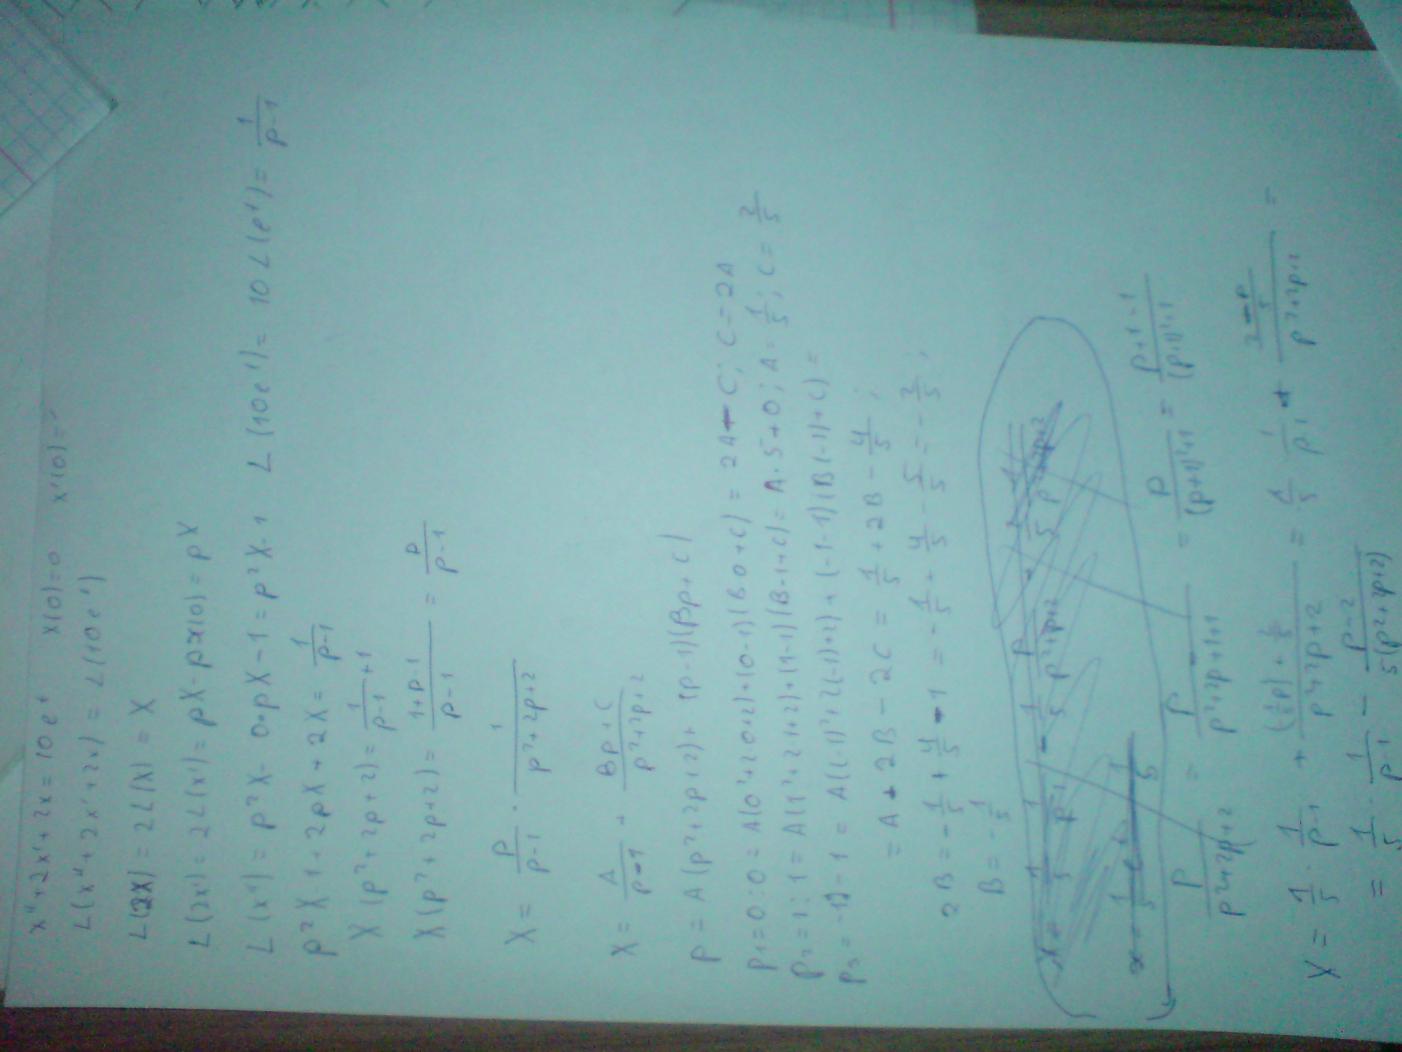 x''+2x'+2x=10e^t x(0)=0 x'(0)=
L(x''+2x'+2x)=L(10e^t)
L(2X)=2L(X)=X
L(2x')=2L(x')=pX-px(0)=pX
L(x'')=p²X-0·pX-1=p²X-1 L(10e^t)=10L(e^t)=1/(p-1)
p²X-1+2pX+2X=1/(p-1)
X(p²+2p+2)=1/(p-1)+1
X(p²+2p+2)=(1+p-1)/(p-1)=p/(p-1)
X=p/(p-1)·1/(p²+2p+2)
X=A/(p-1)+(Bp+C)/(p²+2p+2)
p=A(p²+2p+2)+(p-1)(Bp+C)
p₁=0:0=A(0²+2·0+2)+(0-1)(B·0+C)=2A-C; C=2A
p₂=1:1=A(1²+2·1+2)+(1-1)(B·1+C)=A·5+0; A=1/5; C=2/5
p₃=-1:-1=A((-1)²+2(-1)+2)+(-1-1)(B(-1)+C)=
=A+2B-2C=1/5+2B-4/5;
2B=-1/5+4/5-1=-1/5+4/5-5/5=-2/5;
B=-1/5
p/(p²+2p+2)=p/(p²+2p+1+1)=p/((p+1)²+1)=(p+1-1)/((p+1)²+1)
X=1/5·1/(p-1)+((-1/5p)+2/5)/(p²+2p+2)=1/5 1/(p-1)+((2-p)/5)/(p²+2p+2)=
=1/5·1/(p-1)-(p-2)/(5(p²+2p+2))